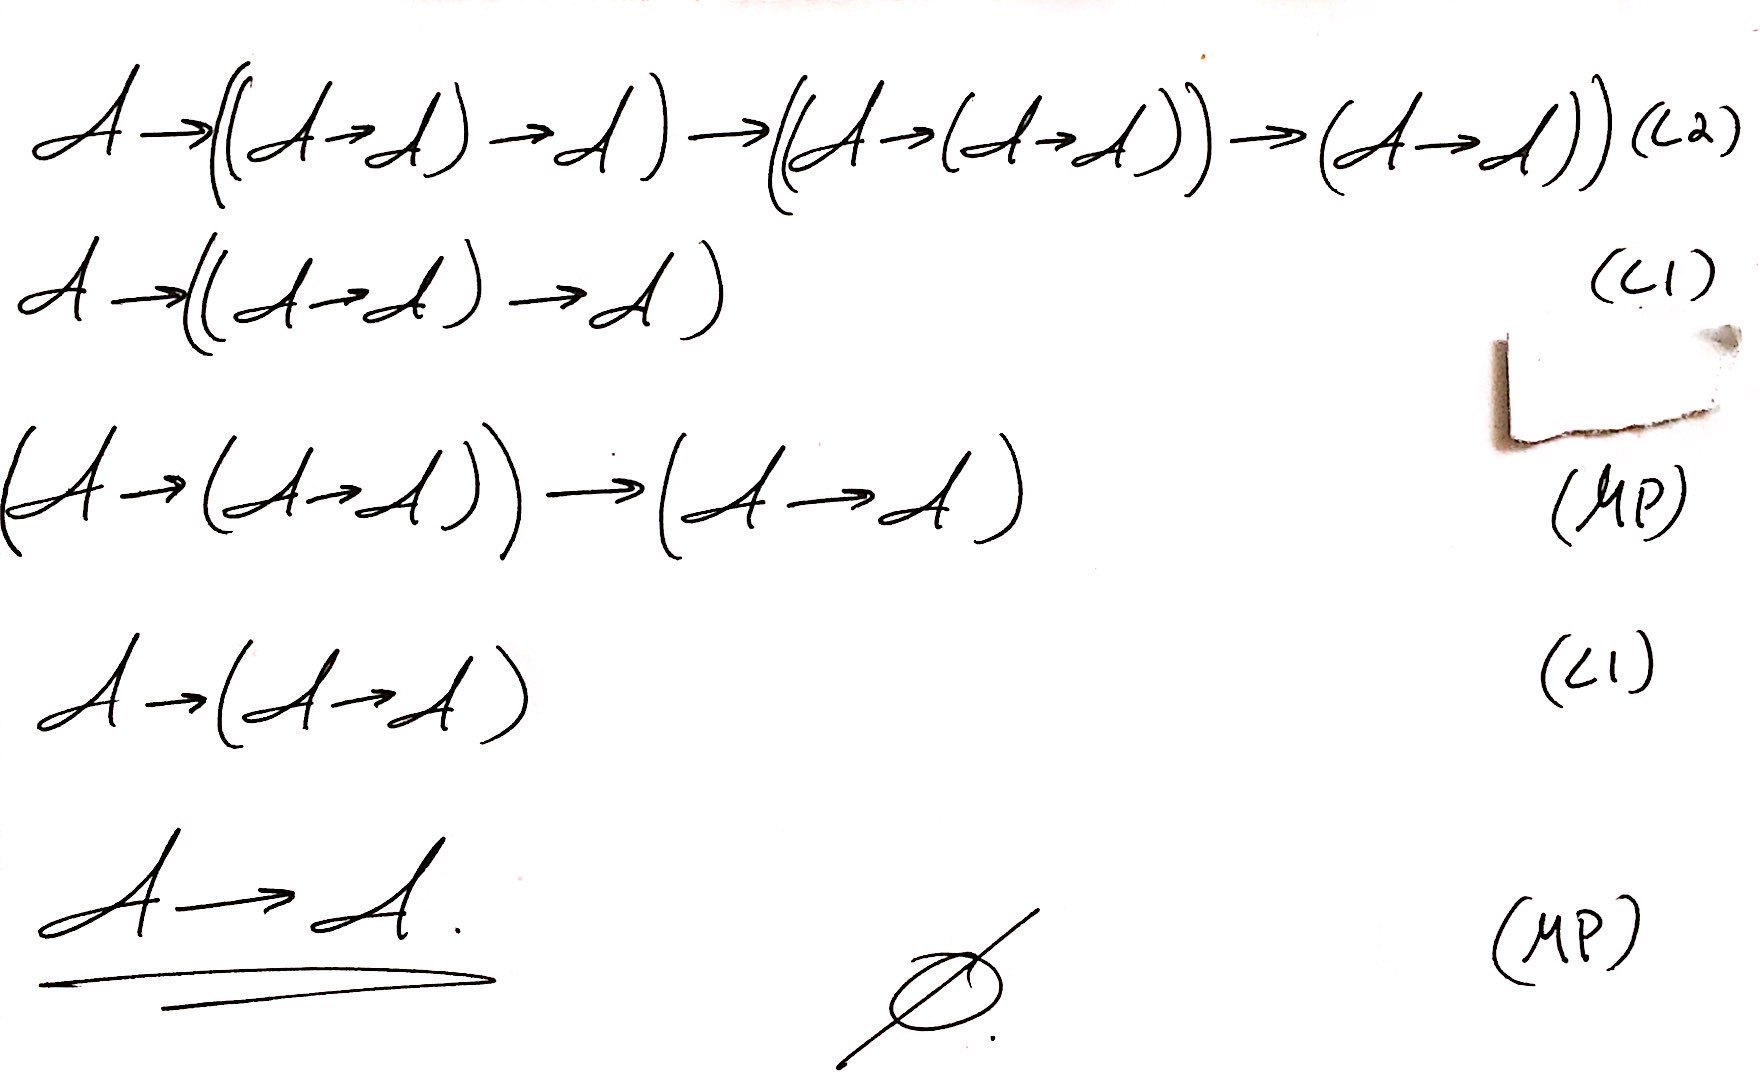 𝒜→((𝒜→𝒜)→𝒜)→((𝒜→(𝒜→𝒜))→(𝒜→𝒜)) (L2)
𝒜→((𝒜→𝒜)→𝒜) (L1)
(𝒜→(𝒜→𝒜))→(𝒜→𝒜) (MP)
𝒜→(𝒜→𝒜) (L1)
𝒜→𝒜. (MP)
∅.